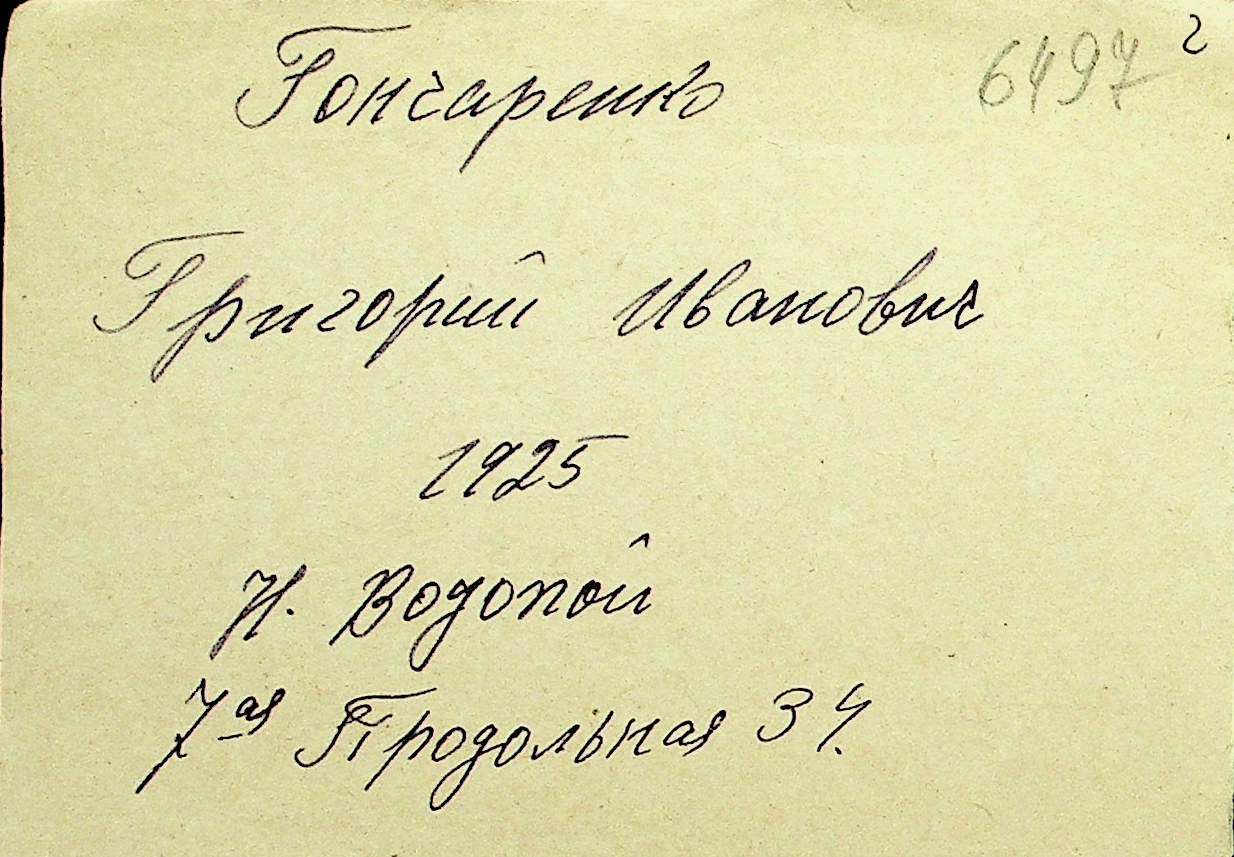 6497 г
Гончаренко
Григорий Иванович
1925
Н. Водопой
7ая Продольная 34.